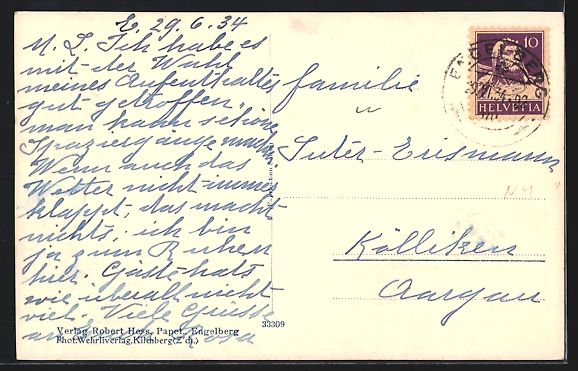 E. 29.6.34
M. L. Ich habe es
mit der Wahl
meines Aufenthaltes
gut getroffen,
man kann schöne
Spaziergänge machen
Wenn auch das
Wetter nicht immer
klappt, das macht
nichts, ich bin
ja zum Ruhen
hier. Gäste hats
wie überall nicht
viel. Viele Grüsse
Rosa
Familie
Suter-Erismann
Kölliken
Aargau
10
HELVETIA
ENGELBERG
Verlag Robert Hess, Papet., Engelberg
Phot. Wehrliverlag, Kilchberg (Zch.)
33309